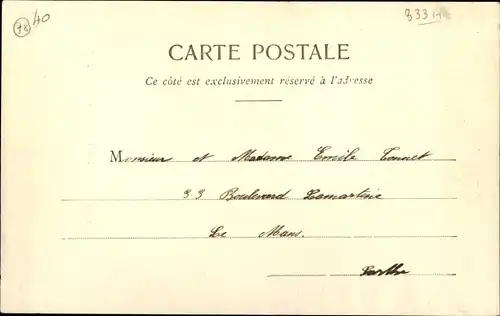 78 40
833
CARTE POSTALE
Ce côté est exclusivement réservé à l'adresse
Monsieur et Madame Emile Tonnet
33 Boulevard Lamartine
Le Mans.
Sarthe